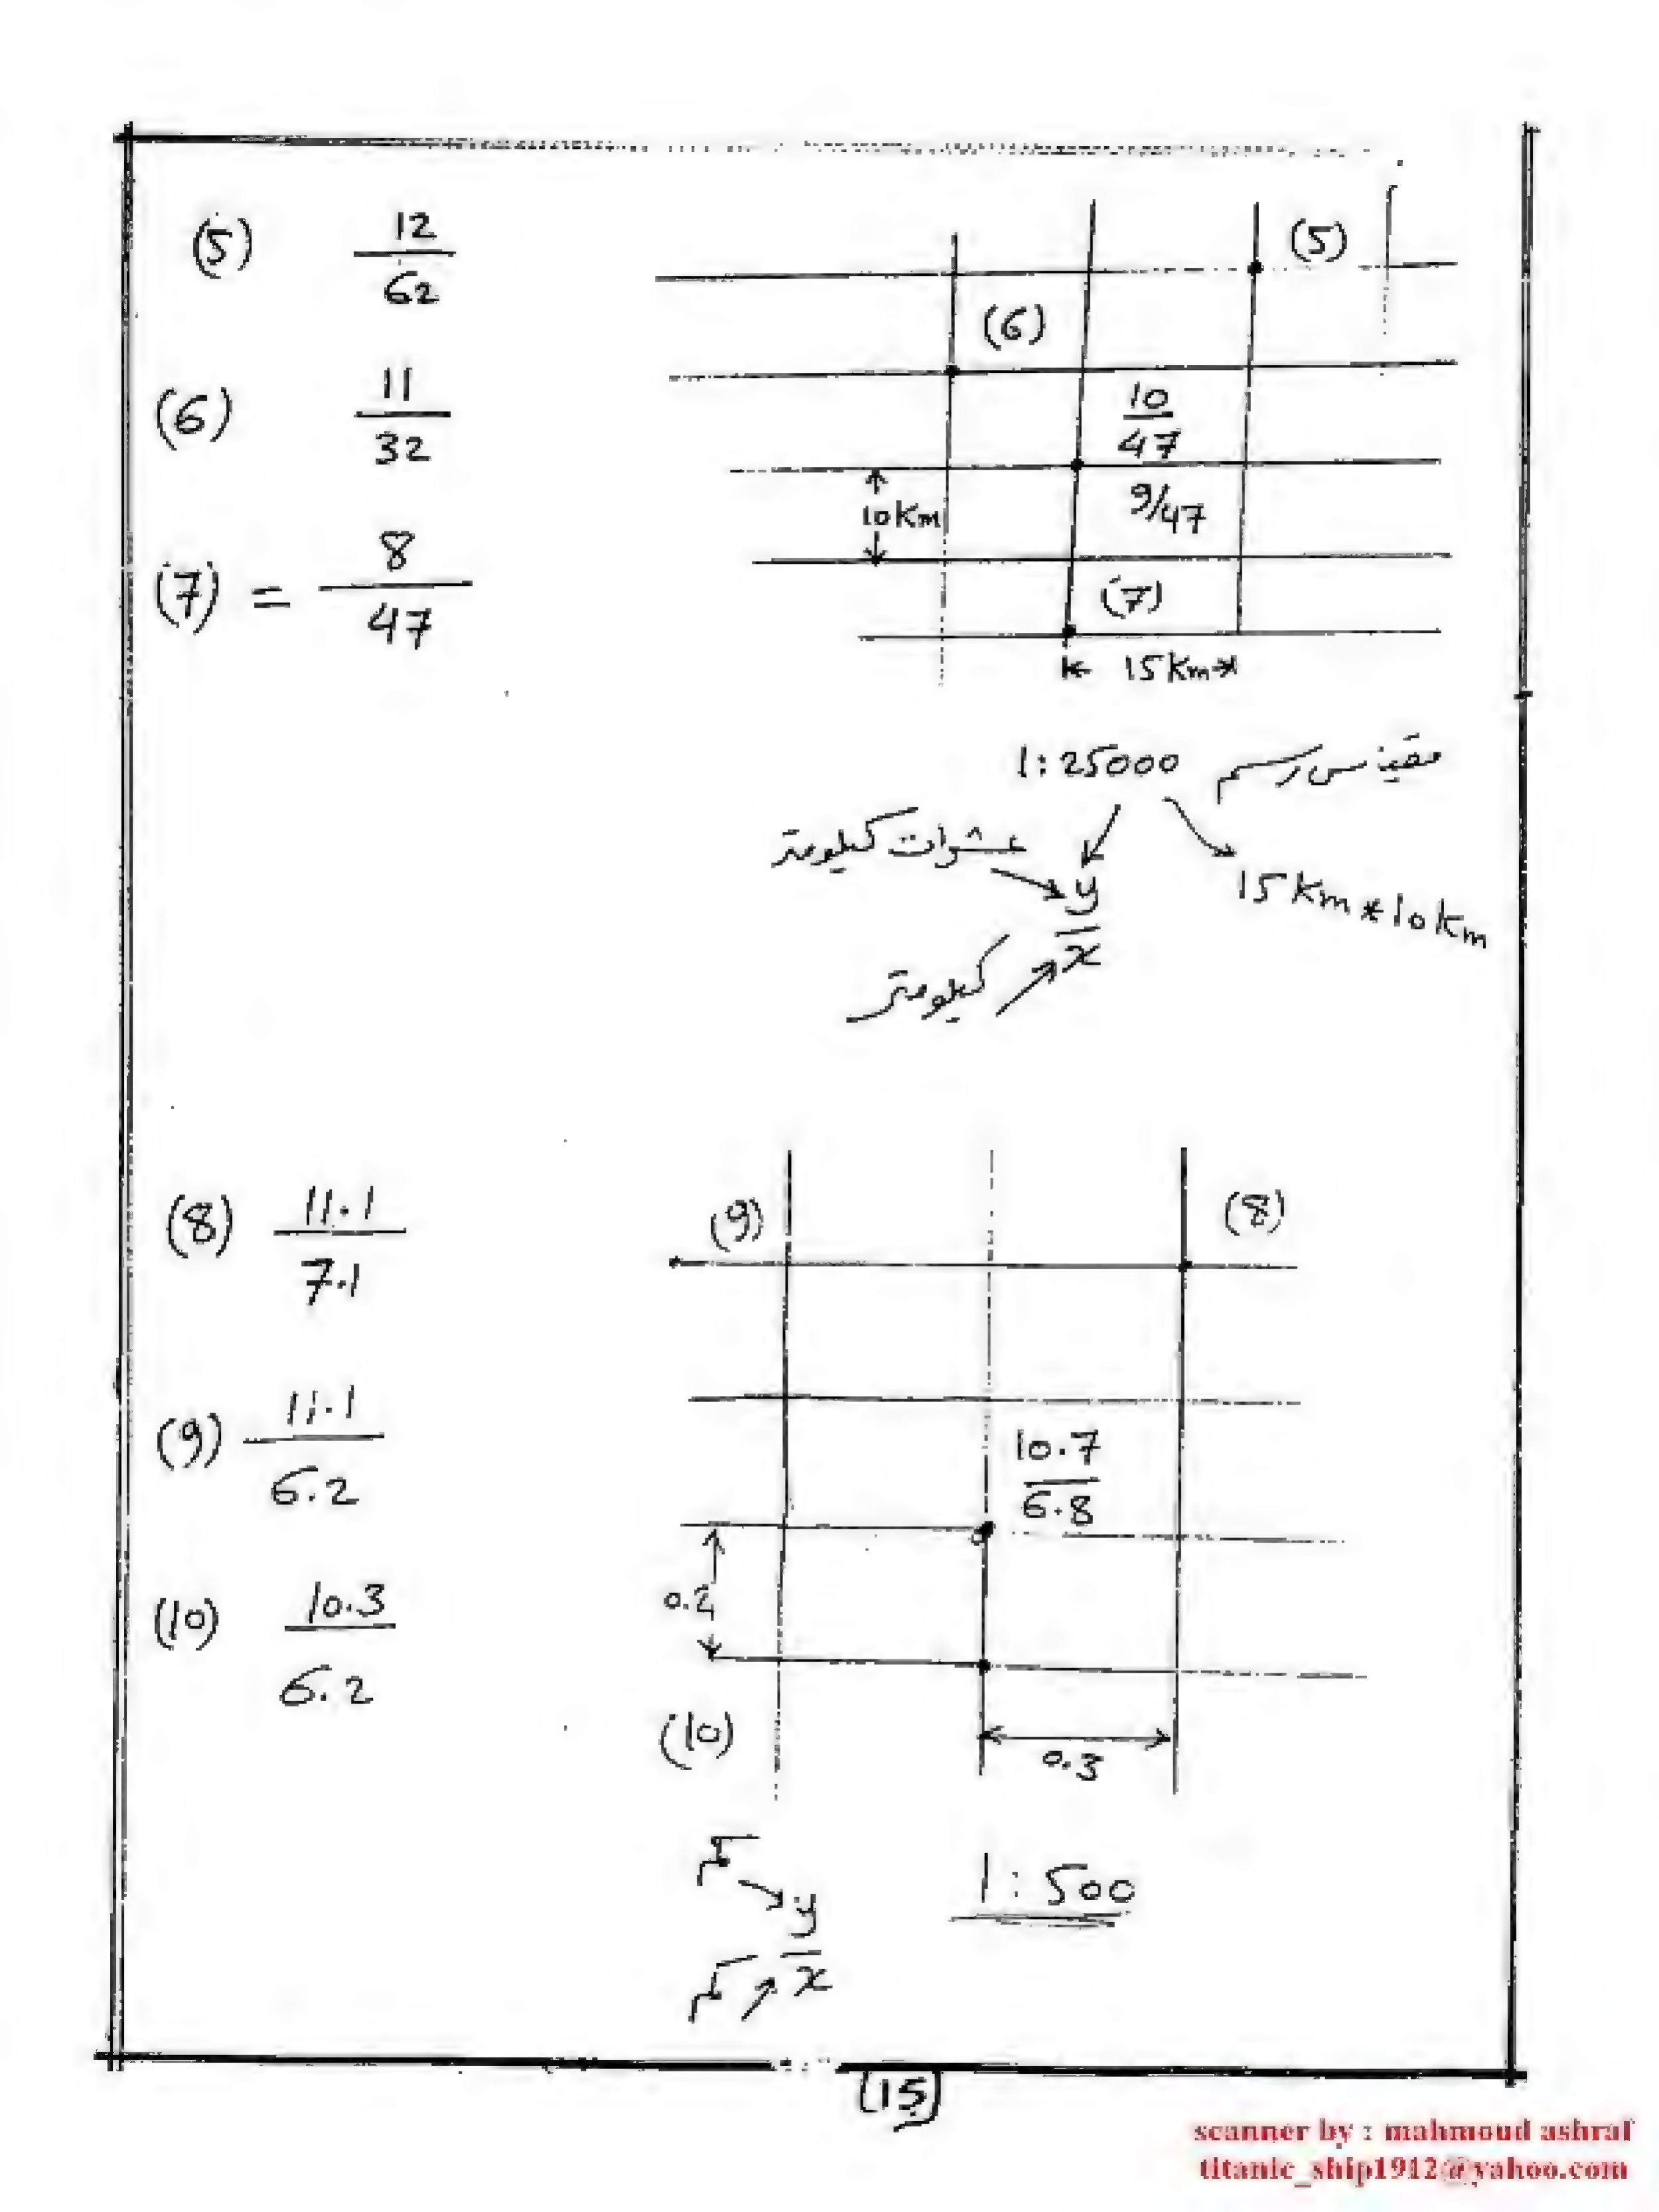 (5) 12/62
(6) 11/32
(7) = 8/47
(5)
(6)
10/47
10Km
9/47
(7)
15Km
مقياس رسم 1:25000
عشرات كيلومتر
y/x
15Km*10Km
كيلومتر
(8) 11.1/7.1
(9) 11.1/6.2
(10) 10.3/6.2
(9)
(8)
10.7/6.8
0.2
(10)
0.3
كم
y/x
كم
1:500
(15)
scanner by : mahmoud ashraf
titanic_ship1912@yahoo.com